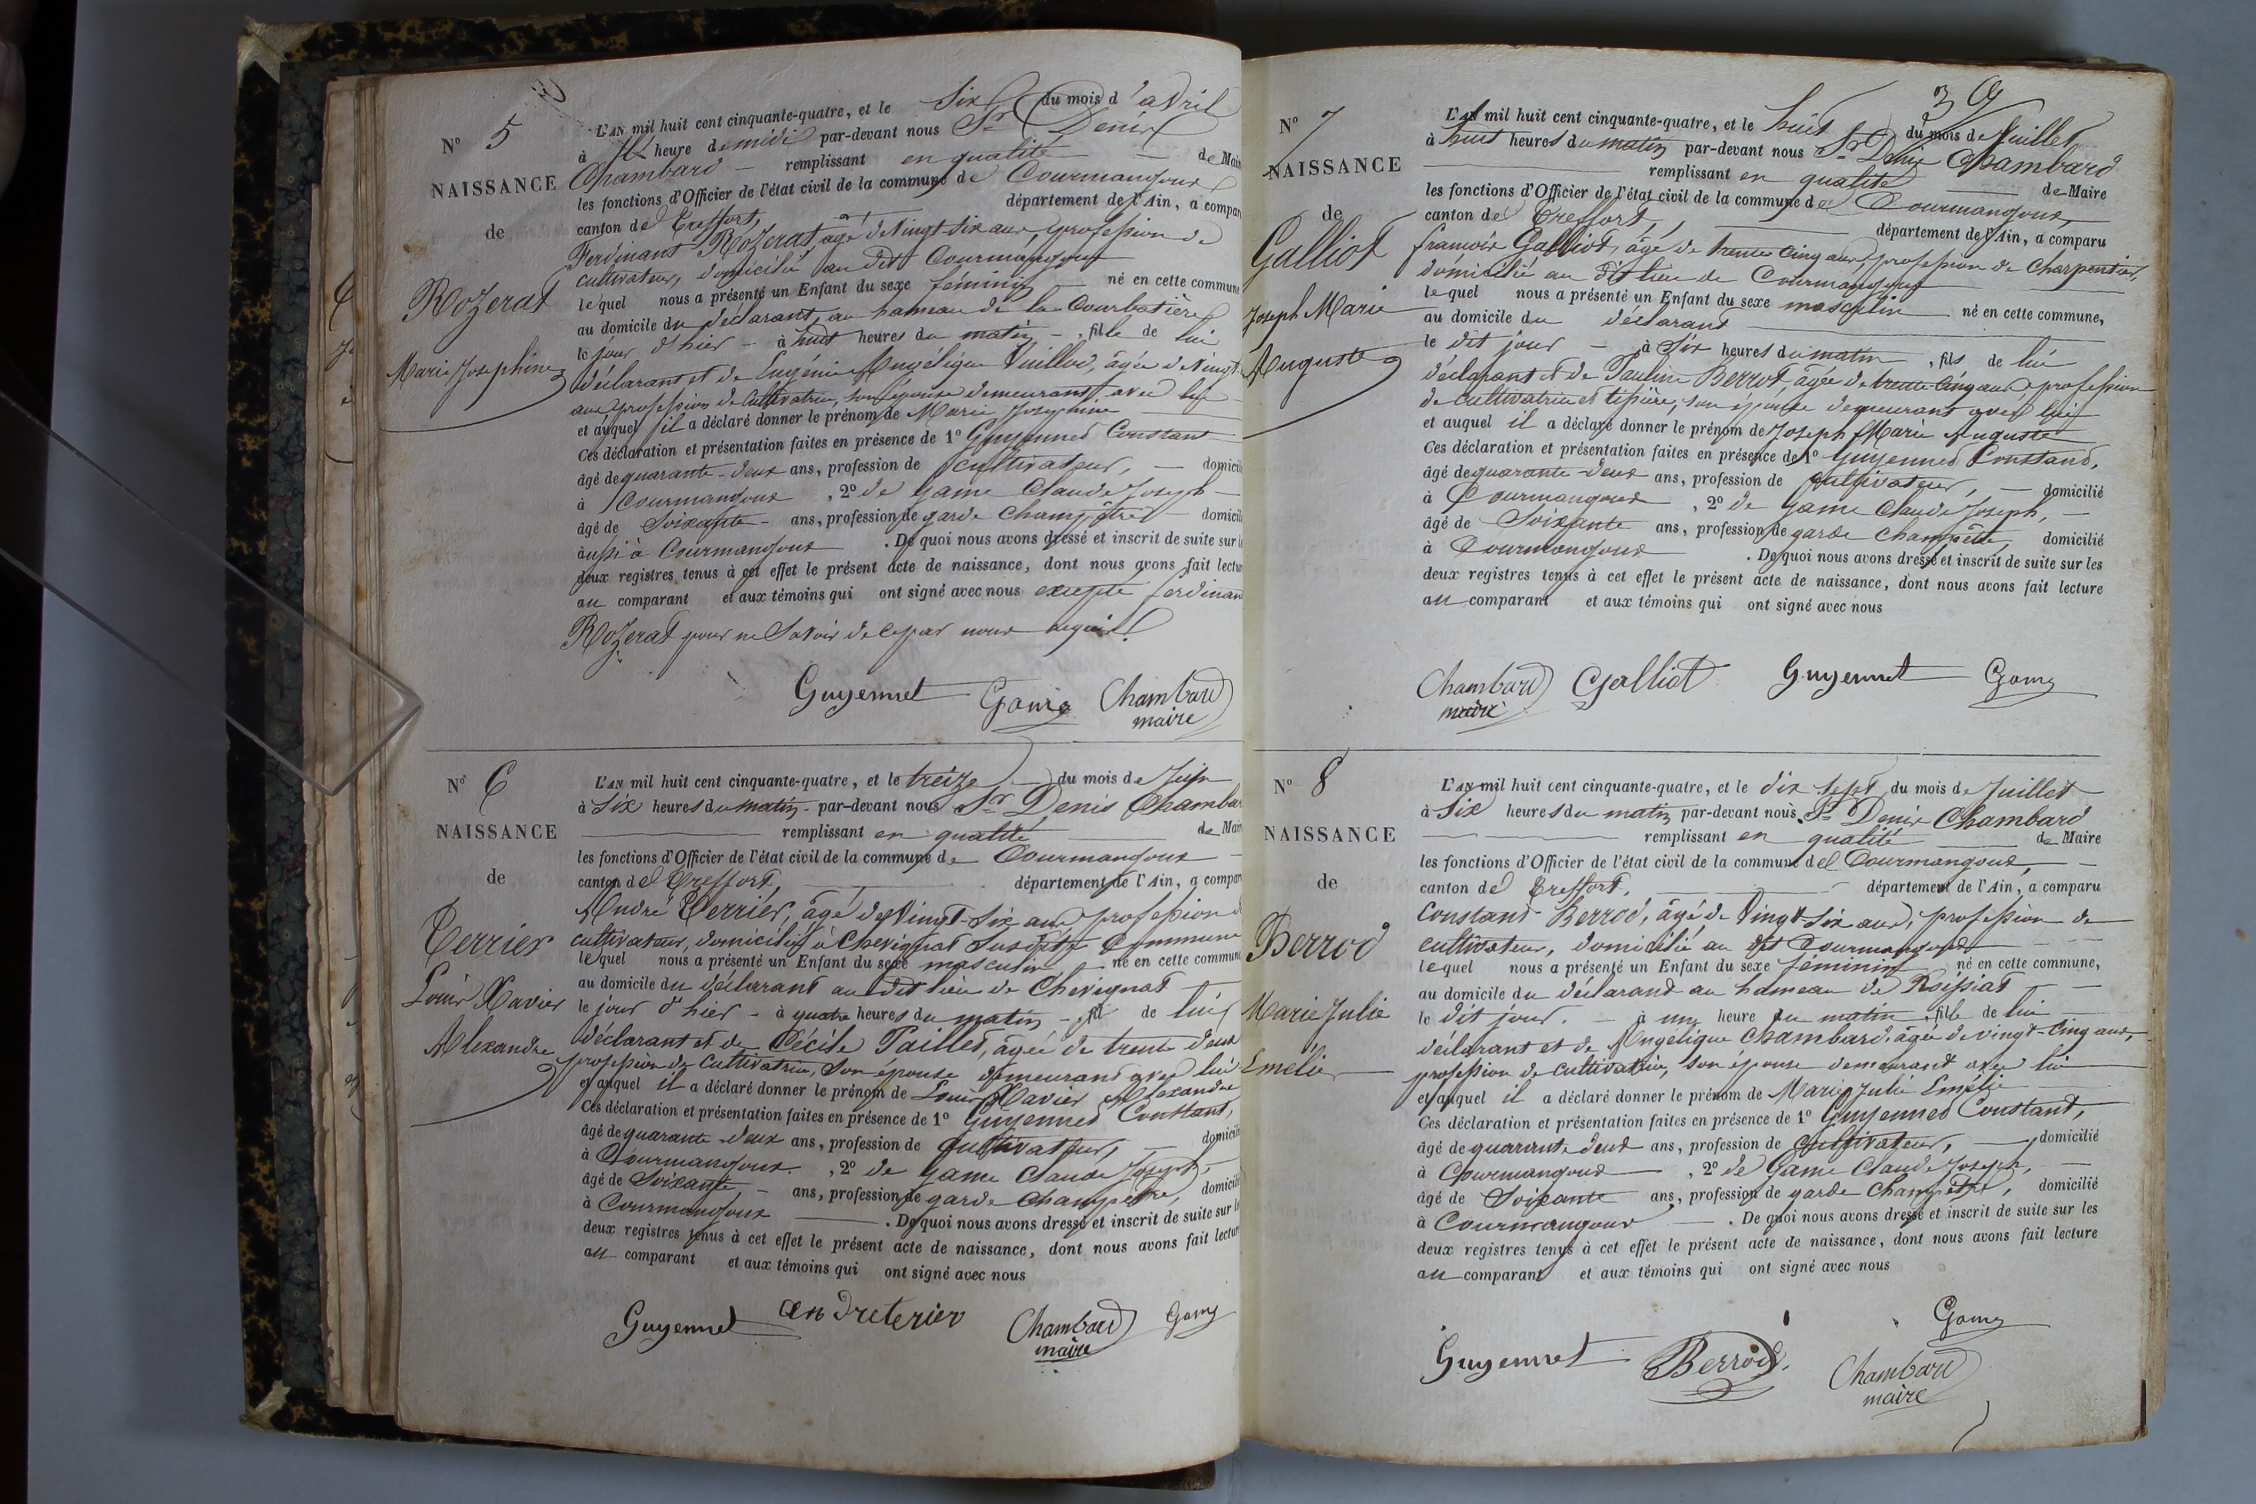 N° 5
NAISSANCE
de
Rozerat
Marie Josephine
L'AN mil huit cent cinquante-quatre, et le Six du mois d'avril
à heure de midi par-devant nous Sr Denis
Chambard remplissant en qualité de Mair
les fonctions d'Officier de l'état civil de la commune de Courmangoux
canton de Treffort, département de l'Ain, a compar
Ferdinant Rozerat, âgé de Vingt six ans, profession de
cultivateur, domicilié au dit Courmangoux
lequel nous a présenté un Enfant du sexe féminin né en cette commune
au domicile du déclarant, au hameau de la Courbatière
le jour d'hier à huit heures du matin, fille de lui
déclarant et de Eugénie Angélique Vuillod, âgée de Vingt
ans profession de Cultivatrice, son épouse demeurant avec lui
et auquel il a déclaré donner le prénom de Marie Josephine
Ces déclaration et présentation faites en présence de 1° Guyennet Constant
âgé de quarante-deux ans, profession de cultivateur, domicili
à Courmangoux, 2° de Game Claude Joseph
âgé de Soixante ans, profession de garde champêtre domicili
aussi à Courmangoux. De quoi nous avons dressé et inscrit de suite sur le
deux registres tenus à cet effet le présent acte de naissance, dont nous avons fait lectur
au comparant et aux témoins qui ont signé avec nous excepté ferdinan
Rozerat pour ne Savoir de ce par nous requis
Guyennet Game Chambard
maire
N° 6
NAISSANCE
de
Terrier
Louis Xavier
Alexandre
L'AN mil huit cent cinquante-quatre, et le treize du mois de Juin
à Six heures du matin par-devant nous Sr Denis Chambar
remplissant en qualité de Mair
les fonctions d'Officier de l'état civil de la commune de Courmangoux
canton de Treffort, département de l'Ain, a compar
André Terrier, âgé de Vingt-Six ans profession d
cultivateur, domicilié à Chevignat susdite Commune
lequel nous a présenté un Enfant du sexe masculin né en cette commune
au domicile du déclarant au dit lieu de Chevignat
le jour d'hier à quatre heures du matin, fil de lui
déclarant et de Cécile Paillet, âgée de trente deux
profession de Cultivatrice, son épouse demeurant avec lui
et auquel il a déclaré donner le prénom de Louis Xavier Alexandre
Ces déclaration et présentation faites en présence de 1° Guyennet Constant,
âgé de quarante-deux ans, profession de Cultivateur, domicili
à Courmangoux, 2° de Game Claude Joseph,
âgé de Soixante ans, profession de garde champêtre, domicili
à Courmangoux. De quoi nous avons dressé et inscrit de suite sur le
deux registres tenus à cet effet le présent acte de naissance, dont nous avons fait lectur
au comparant et aux témoins qui ont signé avec nous
Guyennet andreterier Chambard Game
maire
39
N° 7
NAISSANCE
de
Galliot
Joseph Marie
Auguste
L'AN mil huit cent cinquante-quatre, et le huit du mois de Juillet
à huit heures du matin par-devant nous Sr Denis Chambard
remplissant en qualité de Maire
les fonctions d'Officier de l'état civil de la commune de Courmangoux,
canton de Treffort, département de l'Ain, a comparu
francois Galliot, âgé de trente cinq ans, profession de Charpentier,
domicilié au dit lieu de Courmangoux
lequel nous a présenté un Enfant du sexe masculin né en cette commune,
au domicile du déclarant
le dit jour à Six heures du matin, fils de lui
déclarant et de Pauline Berrod, âgée de trente-cinq ans, profession
de cultivatrice, son épouse demeurant avec lui
et auquel il a déclaré donner le prénom de Joseph Marie Auguste
Ces déclaration et présentation faites en présence de 1° Guyennet Constant,
âgé de quarante-deux ans, profession de Cultivateur, domicilié
à Courmangoux, 2° de Game Claude Joseph,
âgé de Soixante ans, profession de garde champêtre, domicilié
à Courmangoux. De quoi nous avons dressé et inscrit de suite sur les
deux registres tenus à cet effet le présent acte de naissance, dont nous avons fait lecture
au comparant et aux témoins qui ont signé avec nous
Chambard Galliot Guyennet Game
maire
N° 8
NAISSANCE
de
Berrod
Marie Julie
Emélie
L'AN mil huit cent cinquante-quatre, et le dix-sept du mois de Juillet
à Six heures du matin par-devant nous Sr Denis Chambard
remplissant en qualité de Maire
les fonctions d'Officier de l'état civil de la commune de Courmangoux,
canton de Treffort, département de l'Ain, a comparu
Constant Berrod, âgé de Vingt-Six ans, profession de
cultivateur, domicilié au dit Courmangoux
lequel nous a présenté un Enfant du sexe féminin né en cette commune,
au domicile du déclarant au hameau de Roissiat
le dit jour. à une heure du matin, fille de lui
déclarant et de Angélique Chambard, âgée de vingt-cinq ans,
profession de cultivatrice, son épouse demeurant avec lui
et auquel il a déclaré donner le prénom de Marie Julie Emélie
Ces déclaration et présentation faites en présence de 1° Guyennet Constant,
âgé de quarante deux ans, profession de Cultivateur, domicilié
à Courmangoux, 2° de Game Claude Joseph,
âgé de Soixante ans, profession de garde champêtre, domicilié
à Courmangoux. De quoi nous avons dressé et inscrit de suite sur les
deux registres tenus à cet effet le présent acte de naissance, dont nous avons fait lecture
au comparant et aux témoins qui ont signé avec nous
Game
Guyennet Berrod Chambard
maire